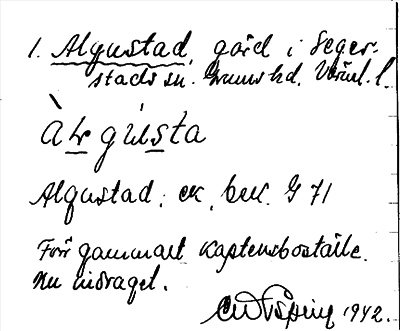 1. Algustad, gård i Seger-
stads sn. Grums hd. Värml. l.
Algustad, ek. bek. G 71
Förr gammalt kaptensboställe.
Nu indraget.
1942.